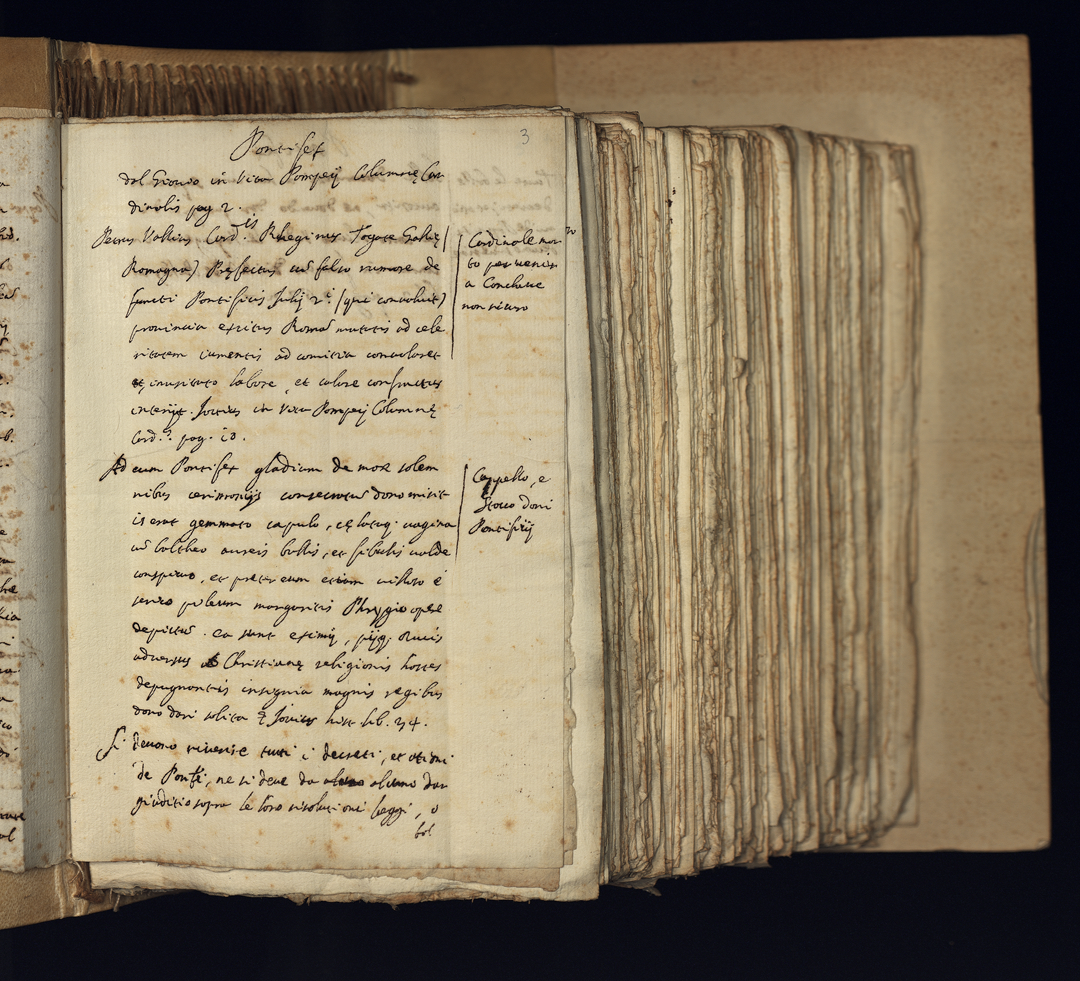 3
Pontifex
dal Giovio in Vita Pompeij Columnę Car
dinalis pag 2.
Petrus Card.is Rheginus Togatę Gallię (
Romagna) Pręfectus cũ falso rumore de
functi Pontificis Julij 2.i (qui convaluit)
provincia exitus Romã mutatis ad cele
ritatem iumentis ad comitia convolaret
et inusitato labore, et calore
interijt. Jovius in Vita Pompeij Columnę
Card.
Cardinale mor
to per venir
a Conclave
non sicuro
Ad eum Pontifex gladium de more solem
nibus cerimonijs consecratũ dono misit
is erat gemmato capulo, cęlataq. vagina
cũ baltheo aureis bullis, et fibulis valde
conspicuo, et pręter eum etiam villoso è
serico pileum margaritis Phrygio opere
depictũ. ea sunt eximij, pijq. Ducis
adversus Christianę religionis hostes
depugnantis insignia magnis regibus
dono dari solita Jovius hist lib. 34.
Cappello, e
Stocco doni
Pontificij
Si devono riverire tutti i decreti, et ationi
de Pontfi, ne si deve da alcuno dar
giuditio sopra le loro risolutioni leggi, o